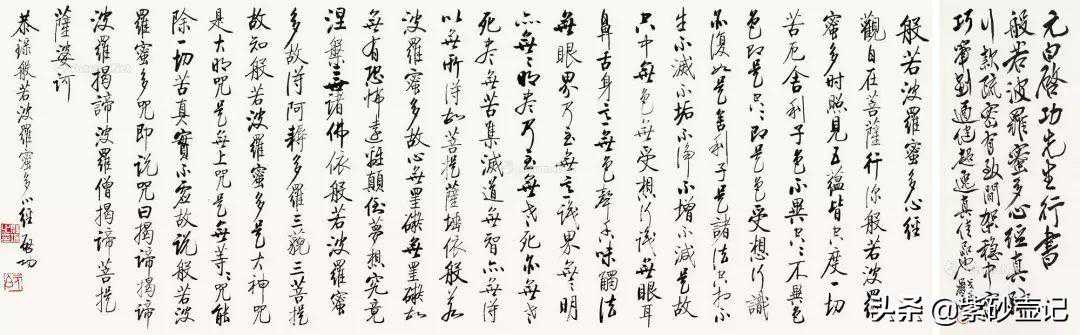 元白啓功先生行書
般若波羅蜜多心經真跡
行款疏密有致間架穩中有
巧筆劃遒健超逸真佳
般若波羅蜜多心經
觀自在菩薩行深般若波羅
蜜多時照見五蘊皆空度一切
苦厄舍利子色不異空々不異色
色即是空々即是色受想行識
亦復如是舍利子是諸法空相不
生不滅不垢不淨不增不減是故
空中無色無受想行識無眼耳
鼻舌身意無色聲香味觸法
無眼界乃至無意識界無々明
亦無々明盡乃至無老死亦無老
死盡無苦集滅道無智亦無得
以無所得故菩提薩埵依般若
波羅蜜多故心無罣礙無罣礙故
無有恐怖遠離顛倒夢想究竟
涅槃三世諸佛依般若波羅蜜
多故得阿耨多羅三藐三菩提
故知般若波羅蜜多是大神咒
是大明咒是無上咒是無等々咒能
除一切苦真實不虛故說般若波
羅蜜多咒即說咒曰揭諦揭諦
波羅揭諦波羅僧揭諦菩提
薩婆訶
恭錄般若波羅蜜多心經 啓功
头条 @紫砂壶记